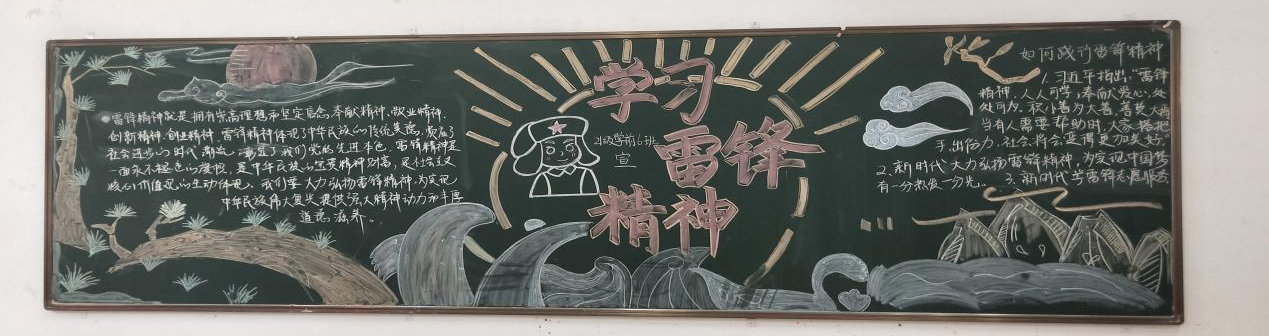 雷锋精神就是拥有崇高理想和坚定信念,奉献精神,敬业精神,
创新精神,创业精神,雷锋精神体现了中华民族的传统美德,契合了
社会进步的时代潮流,彰显了我们党的先进本色,雷锋精神是
一面永不褪色的旗帜,是中华民族的宝贵精神财富,是社会主义
核心价值观的生动体现,我们要大力弘扬雷锋精神,为实现
中华民族伟大复兴提供强大精神动力和丰厚
道德滋养。
学习
雷锋
精神
21级学前6班
宣
如何践行雷锋精神
1.习近平指出:“雷锋
精神,人人可学;奉献爱心,处
处可为。积小善为大善,善莫大焉
当有人需要帮助时,大家搭把
手、出份力,社会将会变得更加美好。
2、新时代大力弘扬雷锋精神,为实现中国梦
有一分热发一分光。3、新时代学雷锋志愿服务